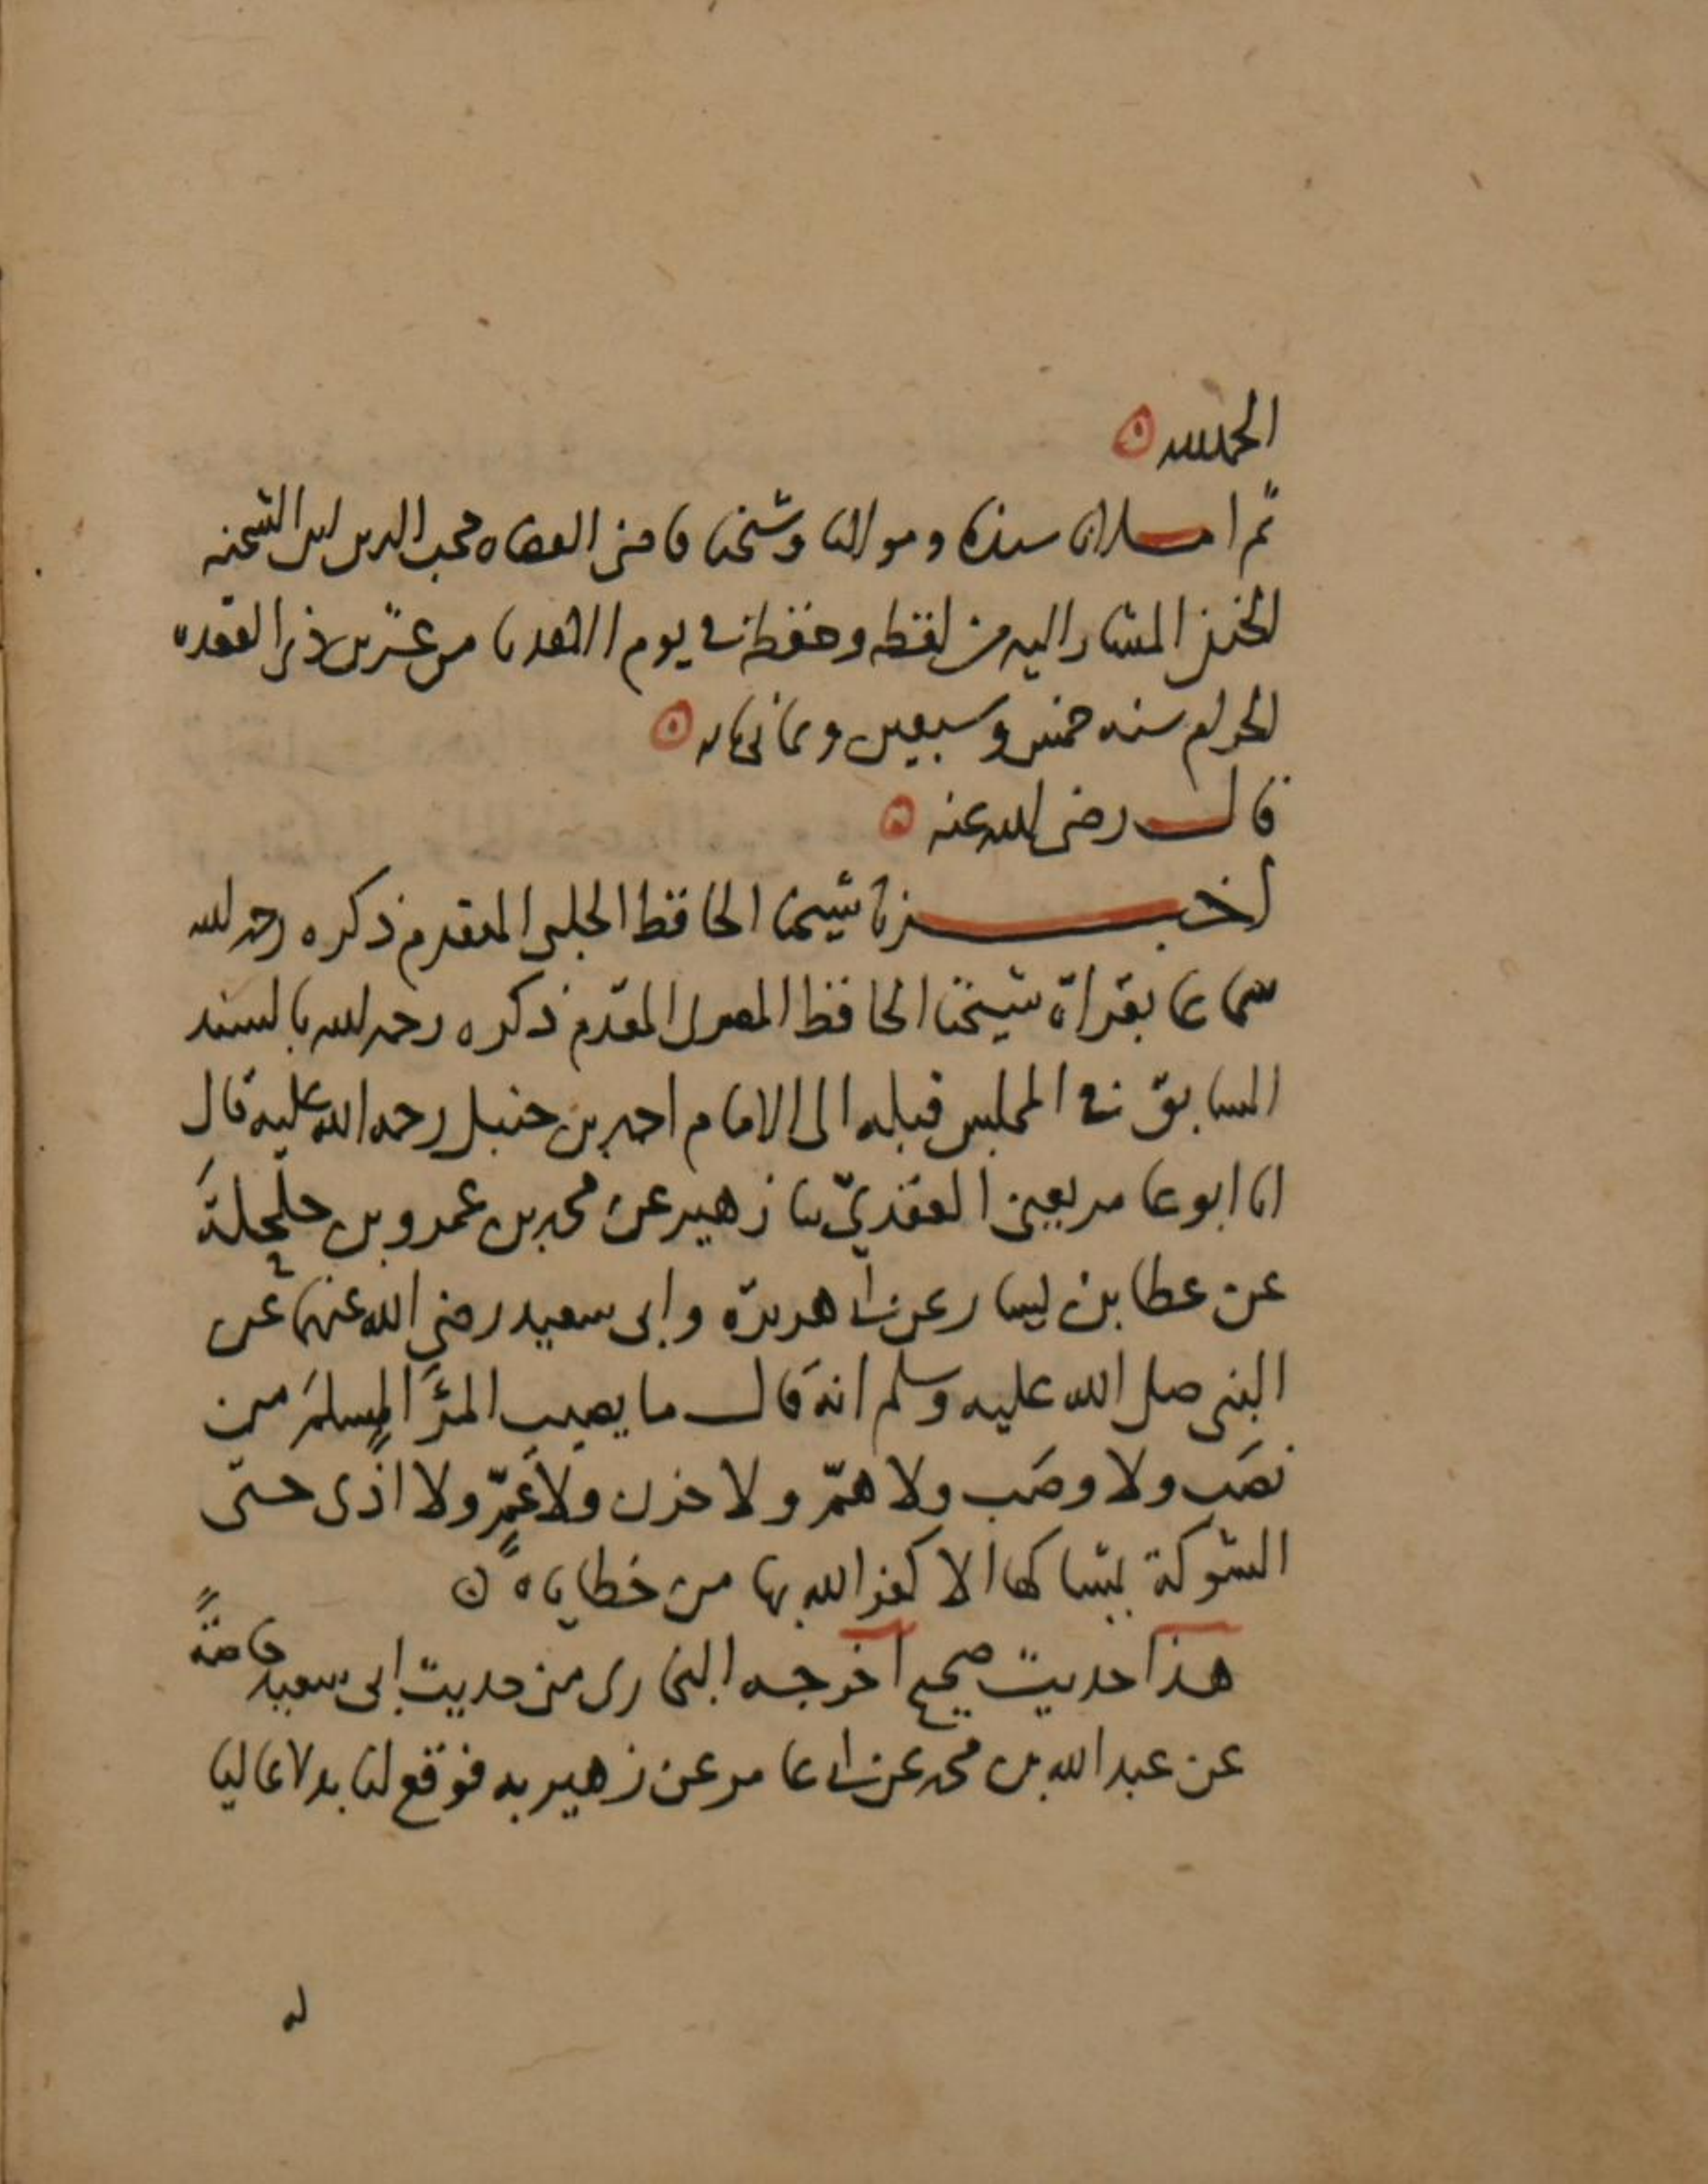 الحمد لله
ثم املانا سيدنا ومولانا وشيخنا قاضي القضاه محب الدين ابن الشحنه
الحنفي المشار اليه من لفظه وحفظه في يوم الاحد من عشرين ذي القعده
الحرام سنه خمس وسبعين وثماني مايه
قال رضي الله عنه
اخبرنا شيخنا الحافظ الحلبي المتقدم ذكره رحمه الله
سماعا بقراة شيخنا الحافظ المقدم ذكره رحمه الله بالسند
السابق في المجلس قبله الى الامام احمد بن حنبل رحمه الله عليه قال
انا ابو عامر يعني العقدي ثنا زهير عن محمد بن عمرو بن حلحلة
عن عطا بن يسار عن ابي هريرة وابي سعيد رضي الله عنهما عن
النبي صلى الله عليه وسلم انه قال ما يصيب المرَٔ المسلمَ من
نصَب ولا وصَب ولا همّ ولا حزن ولا غمّ ولا اذًى حتى
الشوكة يشاكها الا كفر الله بها من خطاياه
هذا حديث صحيح اخرجه البخاري من حديث ابي سعيد خاصّة
عن عبد الله بن محمد عن ابي عامر عن زهير به فوقع لنا بدلا عاليا
له